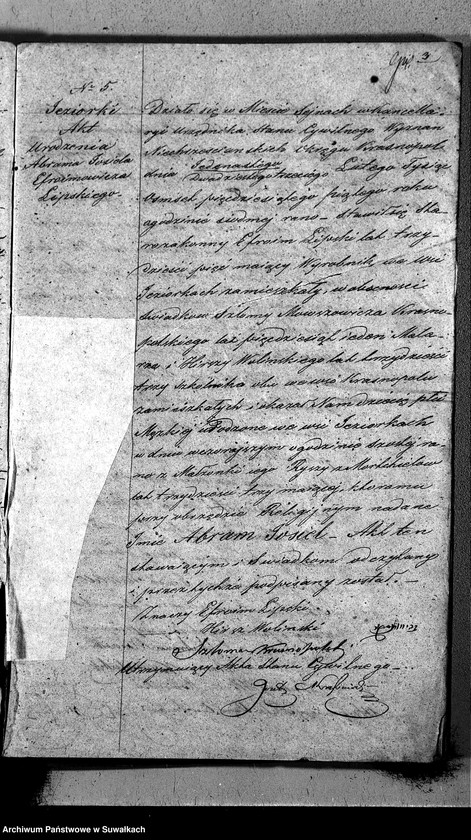 3
N. 5.
Jeziorki
Akt
Urodzenia
Abrama Josiela
Efroimowicza
Lipskiego.
Działo się w Mieście Sejnach w kancella-
ryi Urzędnika Stanu Cywilnego Wyznań
Niechrześciańskich Okręgu Krasnopole
dnia Jedenastego Dwudziestego trzeciego Lutego Tysiąc
Ośmset pięćdziesiątego piątego roku
o godzinie siódmej rano – stawił się Sta-
rozakonny Efroim Lipski lat trzy
dzieści pięć mający Wyrobnik, we wsi
Jeziorkach zamieszkały, w obecności
Świadków Szlomy Mowszowicza Krasno-
polskiego lat pięćdziesiąt jeden Mala-
rza i Hirszy Wolińskiego lat trzydzieści
trzy Szkolnika obu we wsi Krasnopolu
zamieszkałych i okazał Nam dziecię płci
Męzkiej urodzone we wsi Jeziorkach
w dniu wczorajszym o godzinie szóstej ra-
no z Małżonki jego Ryszy z Morthielow
lat trzydzieści trzy mającej, któremu
przy obrzędzie Religijnym nadane
Imie Abram Josiel – Akt ten
stawającym i Świadkom odczytany
i przez tychże podpisany został. –
Znaczy Efroim Lipski
Hirsz Woliński
Szloma Krasnopolski
Utrzymujący Akta Stanu Cywilnego
Archiwum Państwowe w Suwałkach